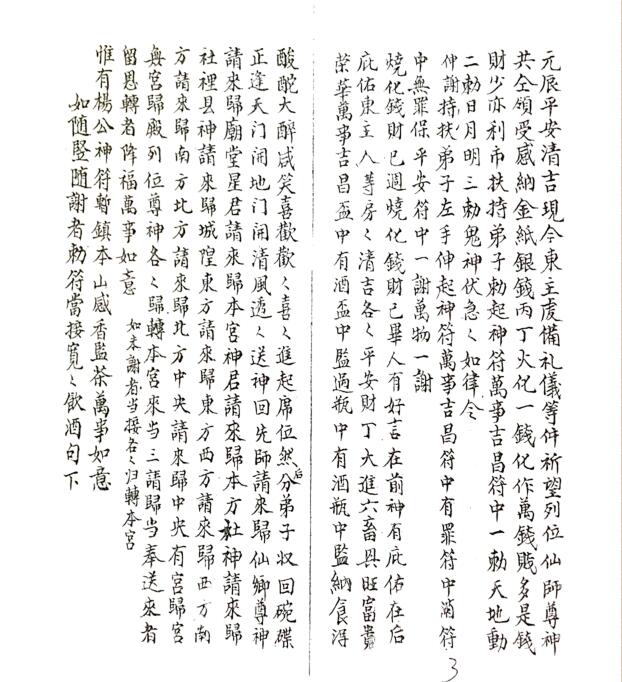 元辰平安清吉現今東主虔備礼儀等件祈望列位仙師尊神
共仝領受感納金紙銀錢丙丁火化一錢化作萬錢賤多是錢
財少亦利市扶持弟子勅起神符萬事吉昌符中一勅天地動
二勅日月明三勅鬼神伏急〻如律令
伸謝持扶弟子左手伸起神符萬事吉昌符中有罪符中消符
中無罪保平安符中一謝萬物一謝
燒化錢財已週燒化錢財已畢人有好言在前神有庇佑在后
庇佑東主人等房〻清吉各〻平安財丁大進六畜興旺富貴
荣華萬事吉昌盃中有酒盃中監過瓶中有酒瓶中監納食得
酸酡大醉咸笑喜歡歡〻喜〻進起席位然后分弟子収回碗碟
正逢天门開地门開清風透〻送神回先師請來歸仙鄉尊神
請來歸廟堂星君請來歸本宮神君請來歸本方社神請來歸
社裡县神請來歸城隍東方請來歸東方西方請來歸西方南
方請來歸南方北方請來歸北方中央請來歸中央有宮歸宮
無宮歸殿列位尊神各〻歸轉本宮來当三請歸当奉送來者
留恩轉者降福萬事如意 如未謝者当接各〻归轉本宮
惟有楊公神符暫鎮本山感香監茶萬事如意
如随竪随謝者勅符當接寬〻飲酒句下
3